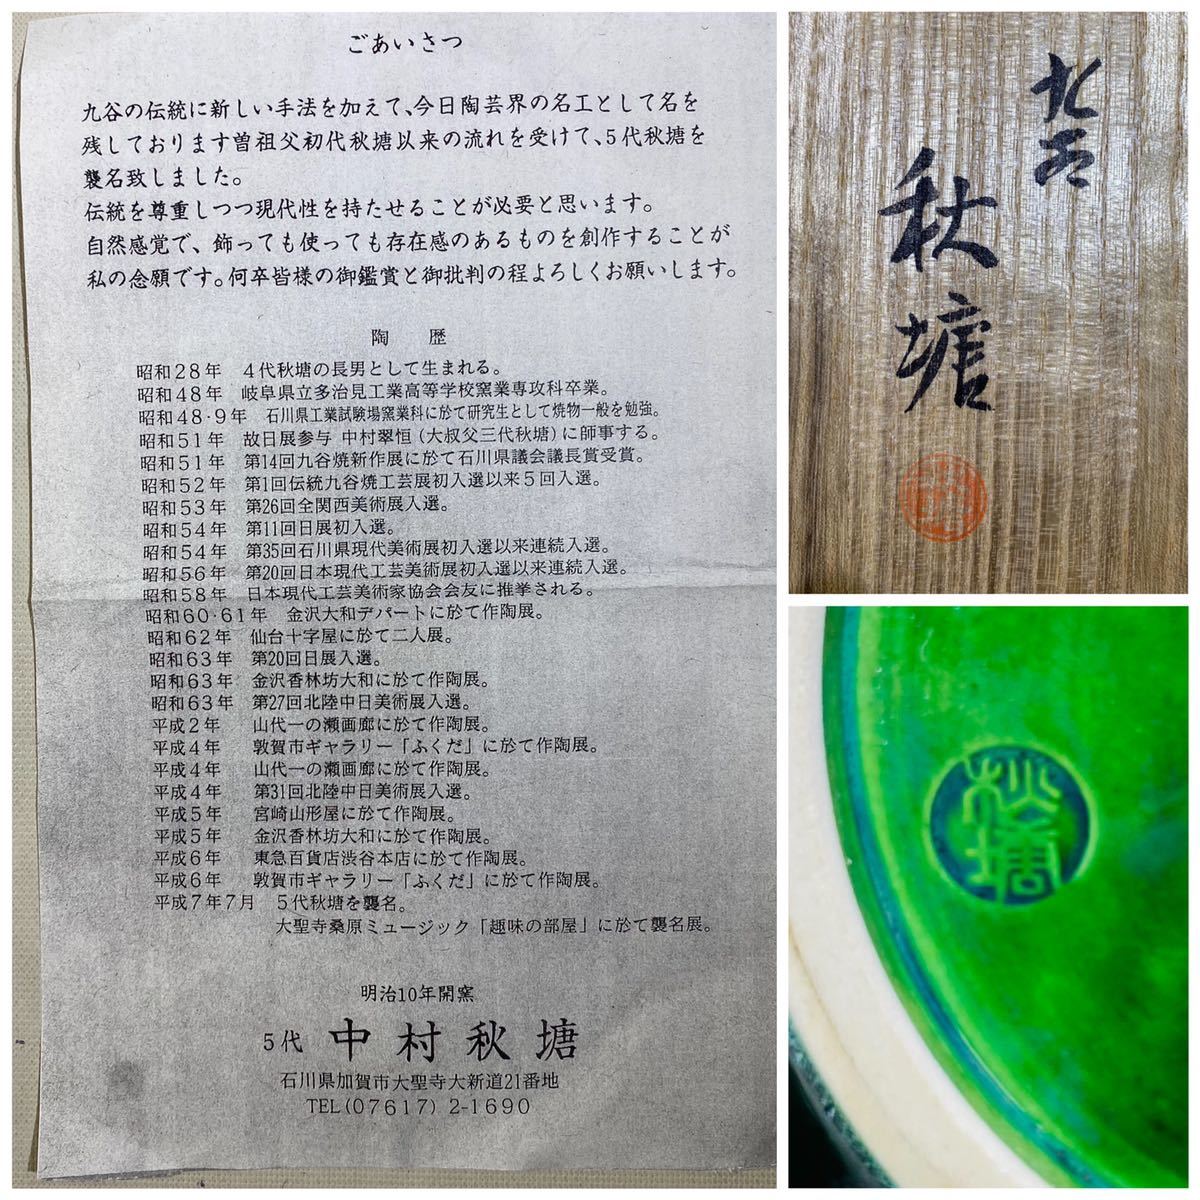 ごあいさつ
九谷の伝統に新しい手法を加えて、今日陶芸界の名工として名を
残しております曽祖父初代秋塘以来の流れを受けて、5代秋塘を
襲名致しました。
伝統を尊重しつつ現代性を持たせることが必要と思います。
自然感覚で、飾っても使っても存在感のあるものを創作することが
私の念願です。何卒皆様の御鑑賞と御批判の程よろしくお願いします。
陶 歴
昭和28年 4代秋塘の長男として生まれる。
昭和48年 岐阜県立多治見工業高等学校窯業専攻科卒業。
昭和48・9年 石川県工業試験場窯業科に於て研究生として焼物一般を勉強。
昭和51年 故日展参与 中村翠恒(大叔父三代秋塘)に師事する。
昭和51年 第14回九谷焼新作展に於て石川県議会議長賞受賞。
昭和52年 第1回伝統九谷焼工芸展初入選以来5回入選。
昭和53年 第26回全関西美術展入選。
昭和54年 第11回日展初入選。
昭和54年 第35回石川県現代美術展初入選以来連続入選。
昭和56年 第20回日本現代工芸美術展初入選以来連続入選。
昭和58年 日本現代工芸美術家協会会友に推挙される。
昭和60・61年 金沢大和デパートに於て作陶展。
昭和62年 仙台十字屋に於て二人展。
昭和63年 第20回日展入選。
昭和63年 金沢香林坊大和に於て作陶展。
昭和63年 第27回北陸中日美術展入選。
平成2年 山代一の瀬画廊に於て作陶展。
平成4年 敦賀市ギャラリー「ふくだ」に於て作陶展。
平成4年 山代一の瀬画廊に於て作陶展。
平成4年 第31回北陸中日美術展入選。
平成5年 宮崎山形屋に於て作陶展。
平成5年 金沢香林坊大和に於て作陶展。
平成6年 東急百貨店渋谷本店に於て作陶展。
平成6年 敦賀市ギャラリー「ふくだ」に於て作陶展。
平成7年7月 5代秋塘を襲名。
大聖寺桑原ミュージック「趣味の部屋」に於て襲名展。
明治10年開窯
5代 中村秋塘
石川県加賀市大聖寺大新道21番地
TEL(07617)2-1690
九谷
秋塘
秋塘